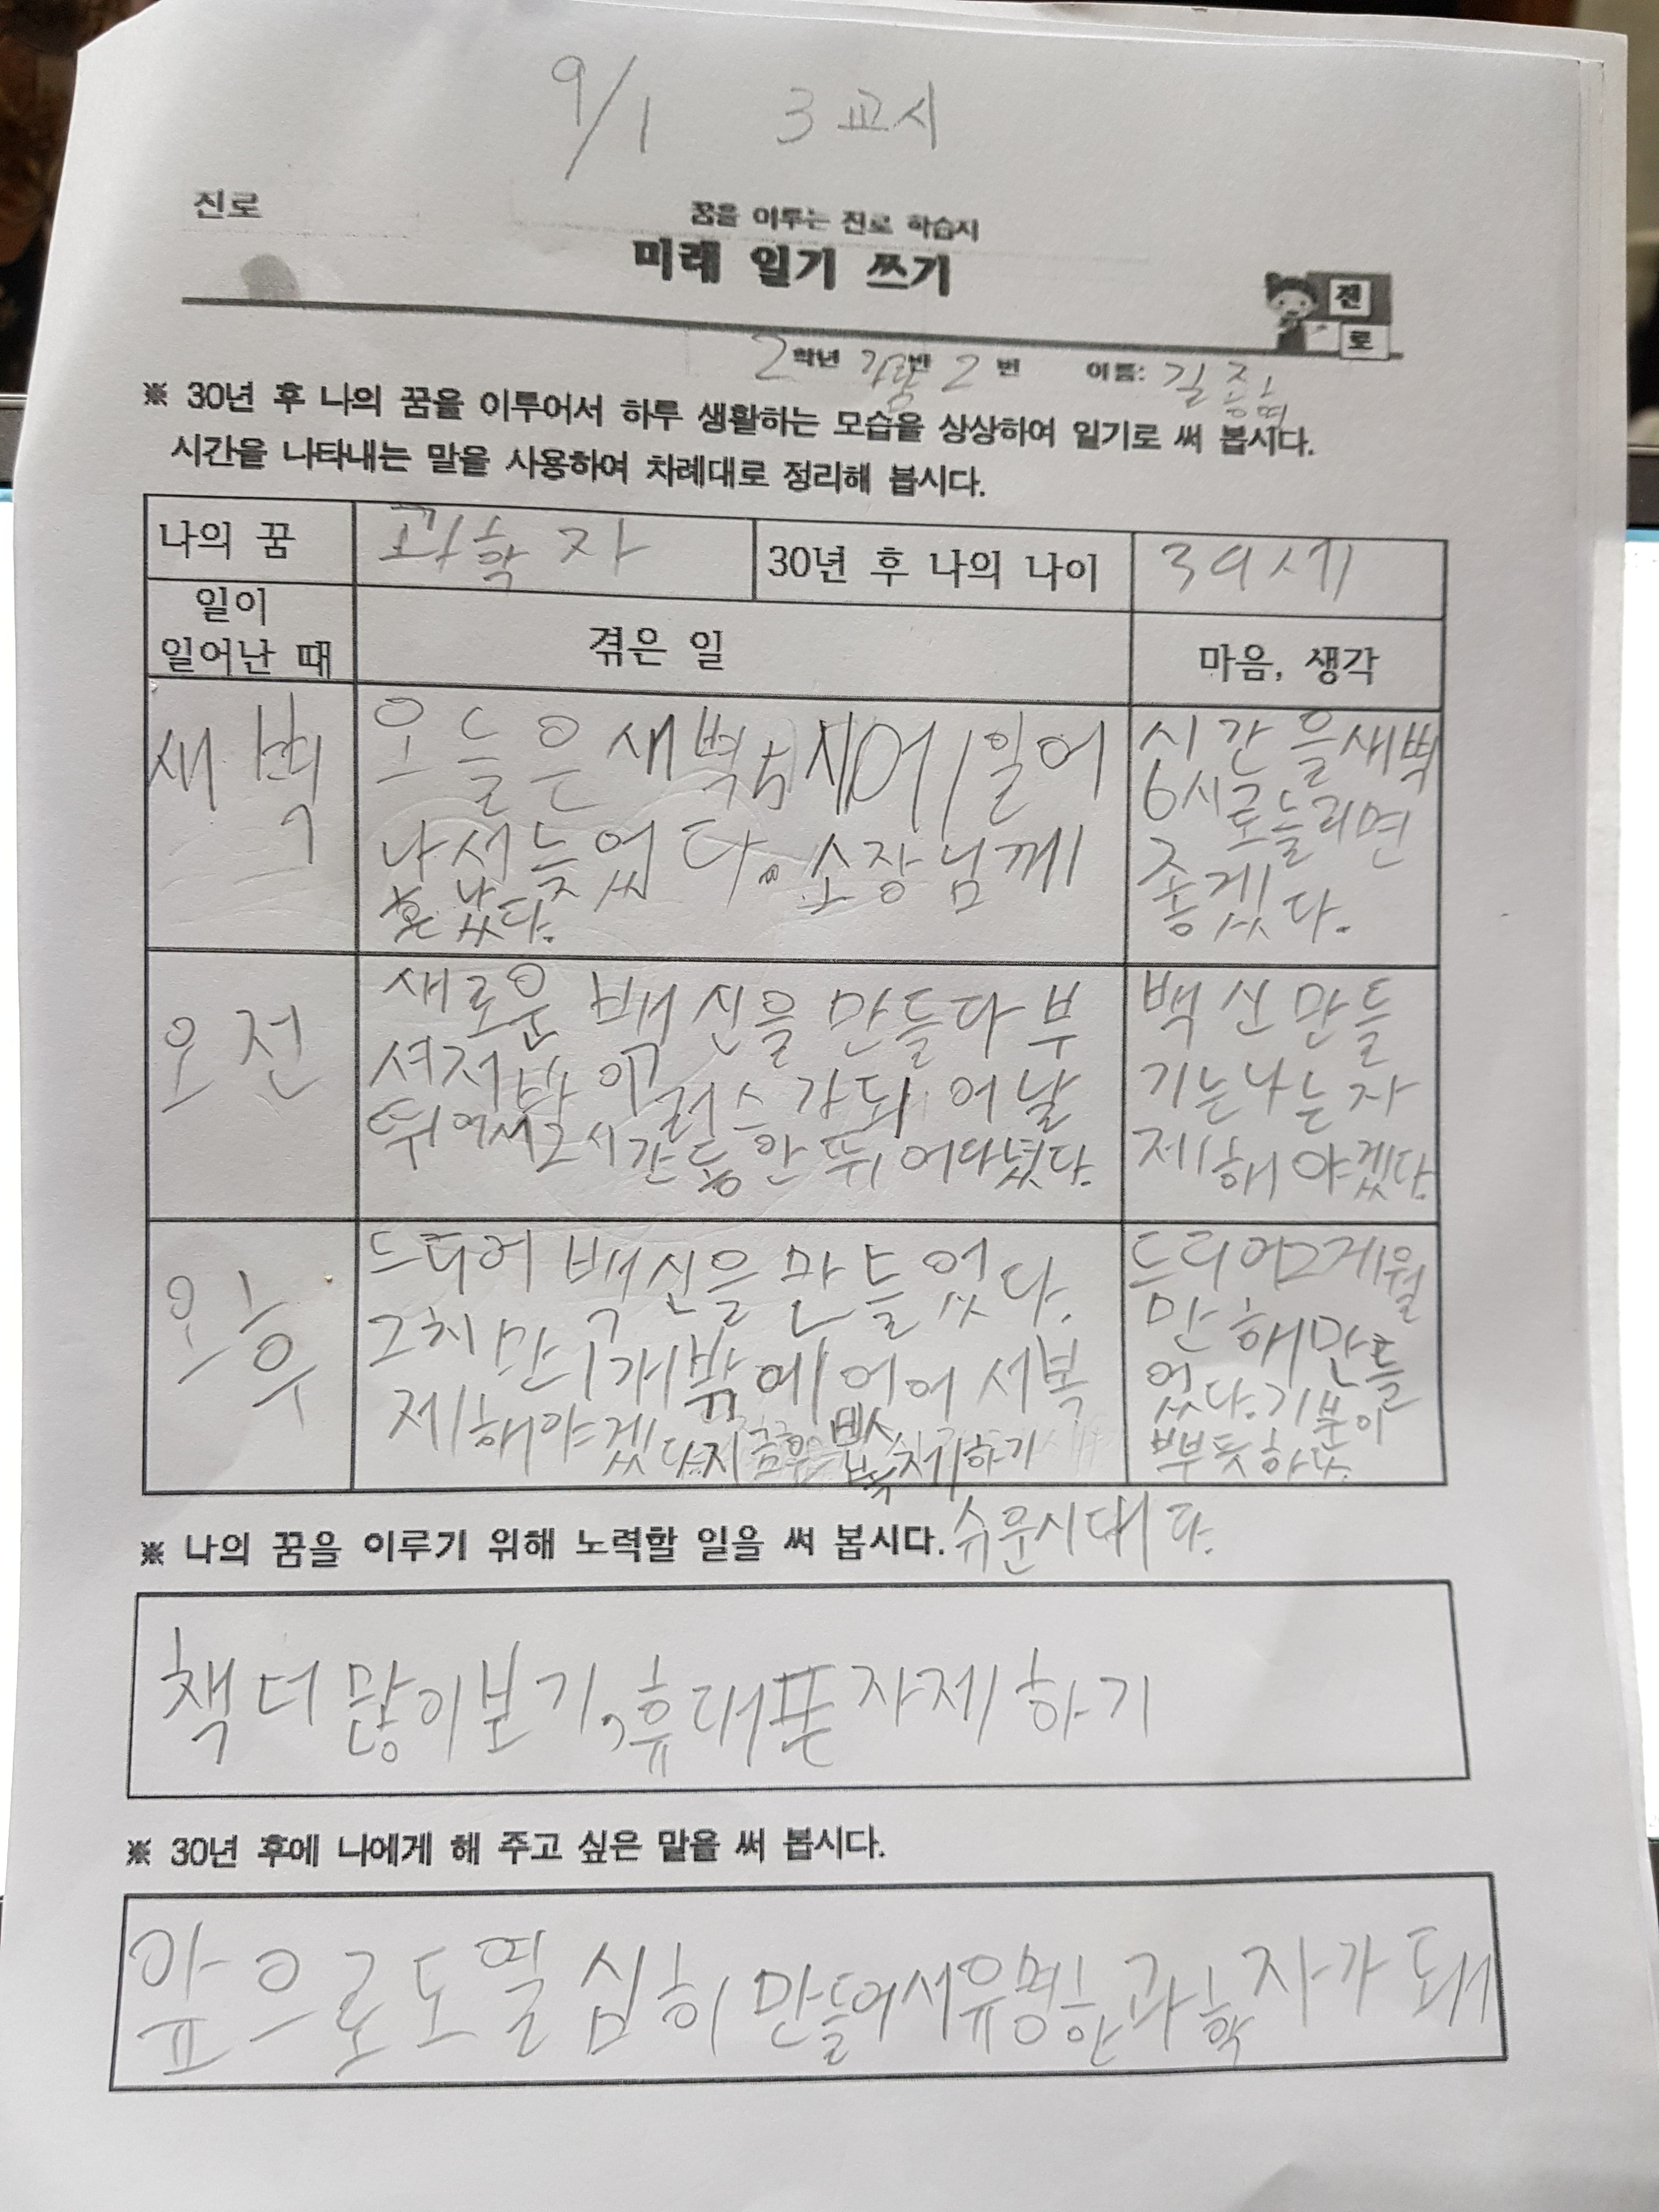 9/1 3교시
진로
꿈을 이루는 진로 학습지
미래 일기 쓰기
진
로
2학년 반 2번 이름: 길
※ 30년 후 나의 꿈을 이루어서 하루 생활하는 모습을 상상하여 일기로 써 봅시다.
시간을 나타내는 말을 사용하여 차례대로 정리해 봅시다.
나의 꿈 과학자 30년 후 나의 나이 39세
일이
일어난 때 겪은 일 마음, 생각
새벽
오늘은 새벽 5 일어
나서 늦었다. 소장님께
혼났다.
시간을 새벽
6시로 늘리면
좋겠다.
오전
새로운 백신을 만들다 부
셔저 바이러스가 되어 날
뛰어서 2시간 동안 뛰어다녔다.
백신 만들
기는 나는 자
제해야겠다.
오후
드디어 백신을 만들었다.
그치만 1개밖에 어 서 복
제해야겠다. 지금은 복제하기
쉬운시대다.
드디어 2개월
만해 만들
었다. 기분이
뿌듯하다.
※ 나의 꿈을 이루기 위해 노력할 일을 써 봅시다.
책 더 많이보기, 휴대폰 자제하기
※ 30년 후에 나에게 해 주고 싶은 말을 써 봅시다.
앞으로도 열심히 만들어서 유명한 과학자가 돼